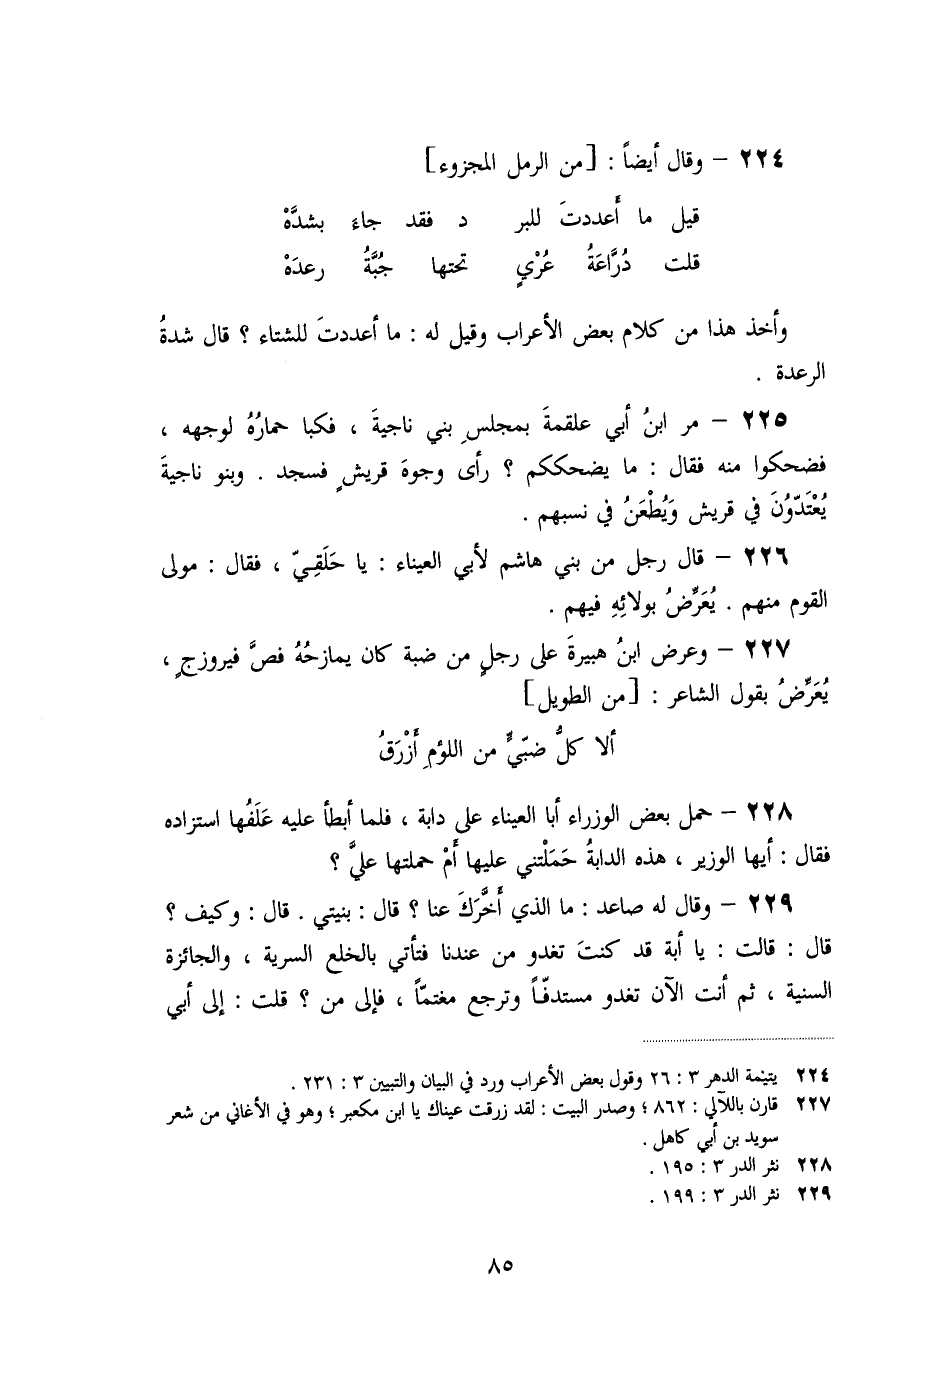 ٢٢٤ – وقال أيضاً : [من الرمل المجزوء]
قيل ما أَعددتَ للبر د فقد جاءَ بشدَّهْ
قلت دُرَّاعَةُ عُرْيٍ تحتها جُبَّةُ رعدَهْ
وأخذ هذا من كلام بعض الأعراب وقيل له : ما أعددتَ للشتاء ؟ قال شدةُ
الرعدة .
٢٢٥ – مر ابنُ أبي علقمةَ بمجلسِ بني ناجيةَ ، فكبا حمارُهُ لوجهه ،
فضحكوا منه فقال : ما يضحككم ؟ رأى وجوهَ قريشٍ فسجد . وبنو ناجيةَ
يُعْتَدّوُنَ في قريش وَيُطْعَنُ في نسبهم .
٢٢٦ – قال رجل من بني هاشم لأبي العيناء : يا حَلَقِيّ ، فقال : مولى
القوم منهم . يُعَرِّضُ بولائِهِ فيهم .
٢٢٧ – وعرض ابنُ هبيرةَ على رجلٍ من ضبة كان يمازحُهُ فصَّ فيروزجٍ ،
يُعَرِّضُ بقول الشاعر : [من الطويل]
ألا كلُّ ضبّيٍّ من اللؤمِ أَزْرَقُ
٢٢٨ – حمل بعض الوزراء أبا العيناء على دابة ، فلما أبطأ عليه عَلَفُها استزاده
فقال : أيها الوزير ، هذه الدابةُ حَمَلْتني عليها أَمْ حملتها عليَّ ؟
٢٢٩ – وقال له صاعد : ما الذي أَخَّرَكَ عنا ؟ قال : بنيتي . قال : وكيف ؟
قال : قالت : يا أبة قد كنتَ تغدو من عندنا فتأتي بالخلع السرية ، والجائزة
السنية ، ثم أنت الآن تغدو مستدفّاً وترجع مغتمّاً ، فإلى من ؟ قلت : إلى أبي
٢٢٤ يتيمة الدهر ٣ : ٢٦ وقول بعض الأعراب ورد في البيان والتبيين ٣ : ٢٣١ .
٢٢٧ قارن باللآلي : ٨٦٢ ؛ وصدر البيت : لقد زرقت عيناك يا ابن مكعبر ؛ وهو في الأغاني من شعر
سويد بن أبي كاهل .
٢٢٨ نثر الدر ٣ : ١٩٥ .
٢٢٩ نثر الدر ٣ : ١٩٩ .
٨٥